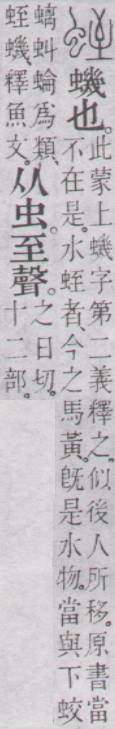 蛭
蟣也。
此蒙上蟣字第二義釋之。似後人所移。原書當
不在是。水蛭者、今之馬黃。旣是水物。當與下蛟
螭虯蜦爲類。
蛭蟣、釋魚文。
从虫。至聲。
之日切。
十二部。